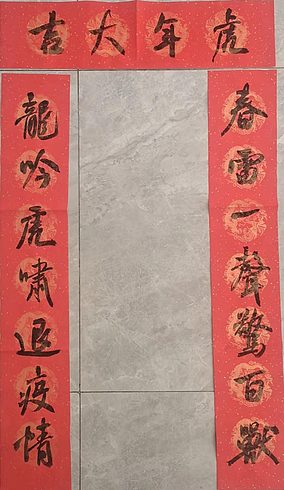 虎年大吉
春雷一聲驚百獸
龍吟虎嘯退疫情